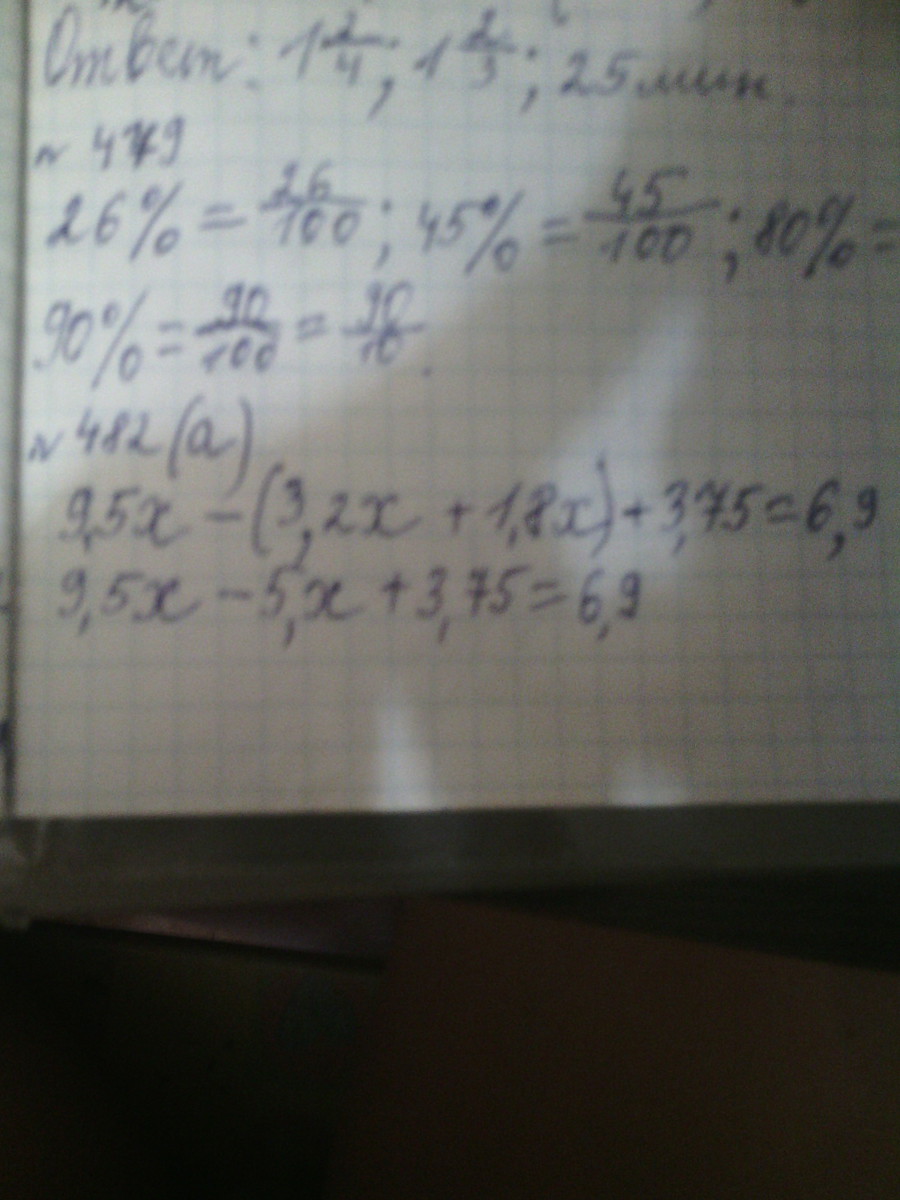 Ответ: 1 2/4; 1 2/3; 25 мин.
N 479
26% = 26/100; 45% = 45/100; 80% =
90% = 90/100 = 90/10.
N 482 (а)
9,5x - (3,2x + 1,8x) + 3,75 = 6,9
9,5x - 5,x + 3,75 = 6,9